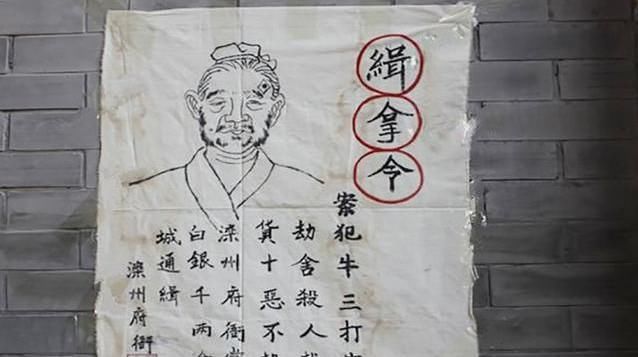 緝拿令
案犯牛三打
劫舍殺人
貨十惡不
滦州府衙
白銀千兩
城通緝
滦州府衙